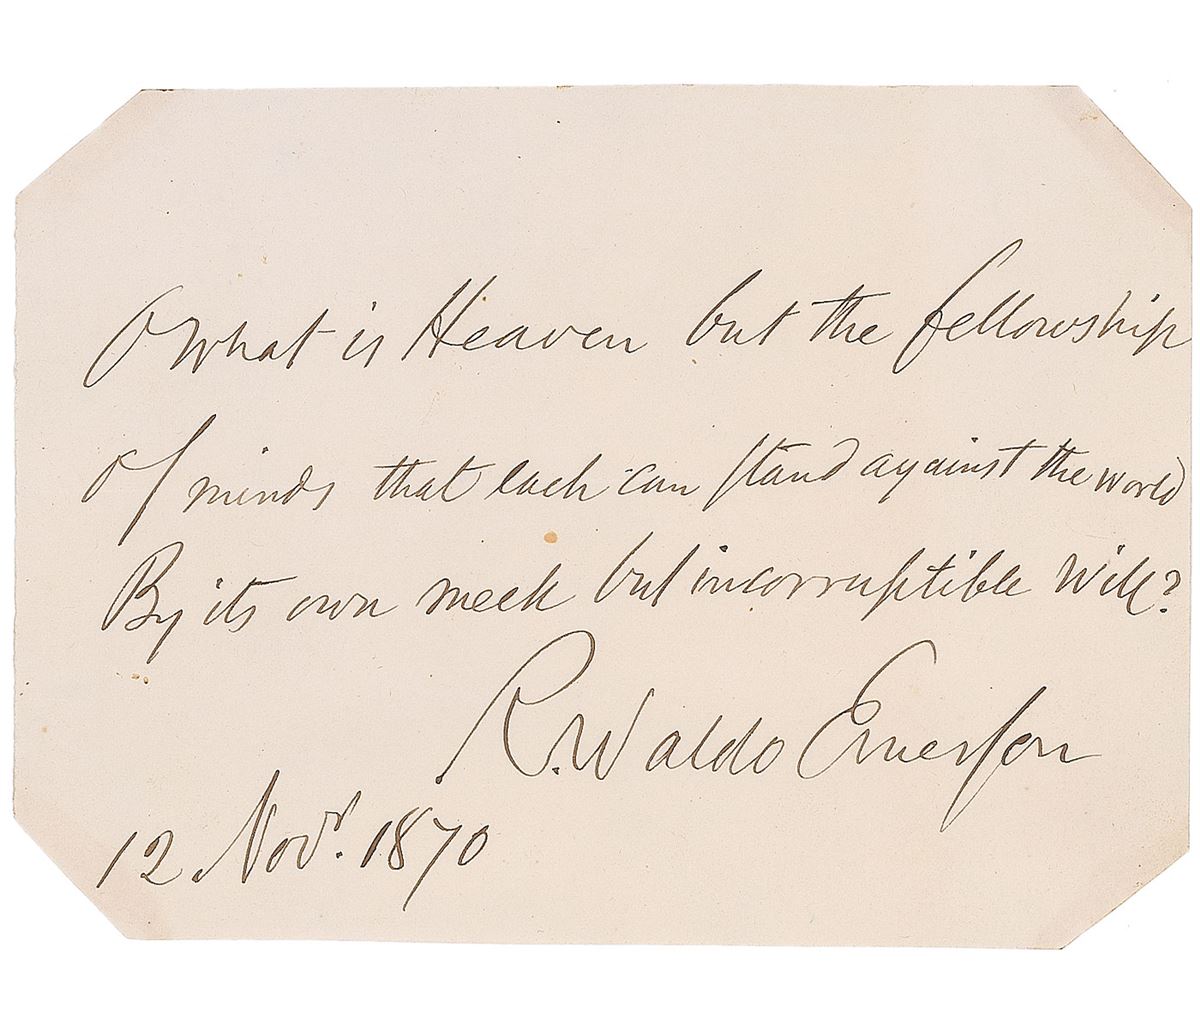 O what is Heaven but the fellowship
Of minds that each can stand against the world
By its own meek but incorruptible will?
R. Waldo Emerson
12 Novr. 1870